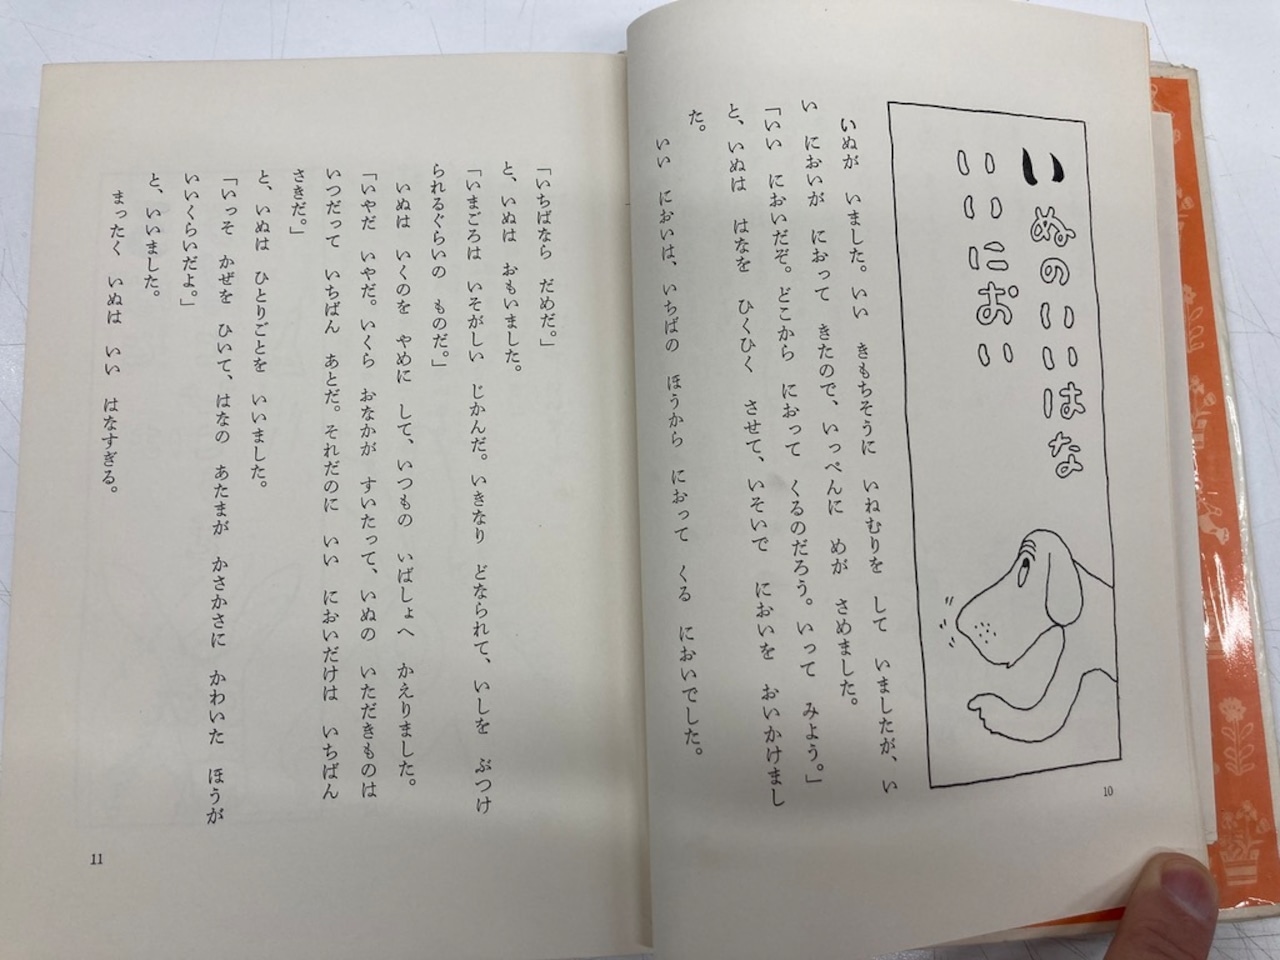 いぬのいいはな
いいにおい
いぬが　いました。いい　きもちそうに　いねむりを　して　いましたが、い
い　においが　におって　きたので、いっぺんに　めが　さめました。
「いい　においだぞ。どこから　におって　くるのだろう。いって　みよう。」
と、いぬは　はなを　ひくひく　させて、いそいで　においを　おいかけまし
た。
いい　においは、いちばの　ほうから　におって　くる　においでした。
10
「いちばなら　だめだ。」
と、いぬは　おもいました。
「いまごろは　いそがしい　じかんだ。いきなり　どなられて、いしを　ぶつけ
られるぐらいの　ものだ。」
いぬは　いくのを　やめに　して、いつもの　いばしょへ　かえりました。
「いやだ　いやだ。いくら　おなかが　すいたって、いぬの　いただきものは
いつだって　いちばん　あとだ。それだのに　いい　においだけは　いちばん
さきだ。」
と、いぬは　ひとりごとを　いいました。
「いっそ　かぜを　ひいて、はなの　あたまが　かさかさに　かわいた　ほうが
いいくらいだよ。」
と、いいました。
まったく　いぬは　いい　はなすぎる。
11